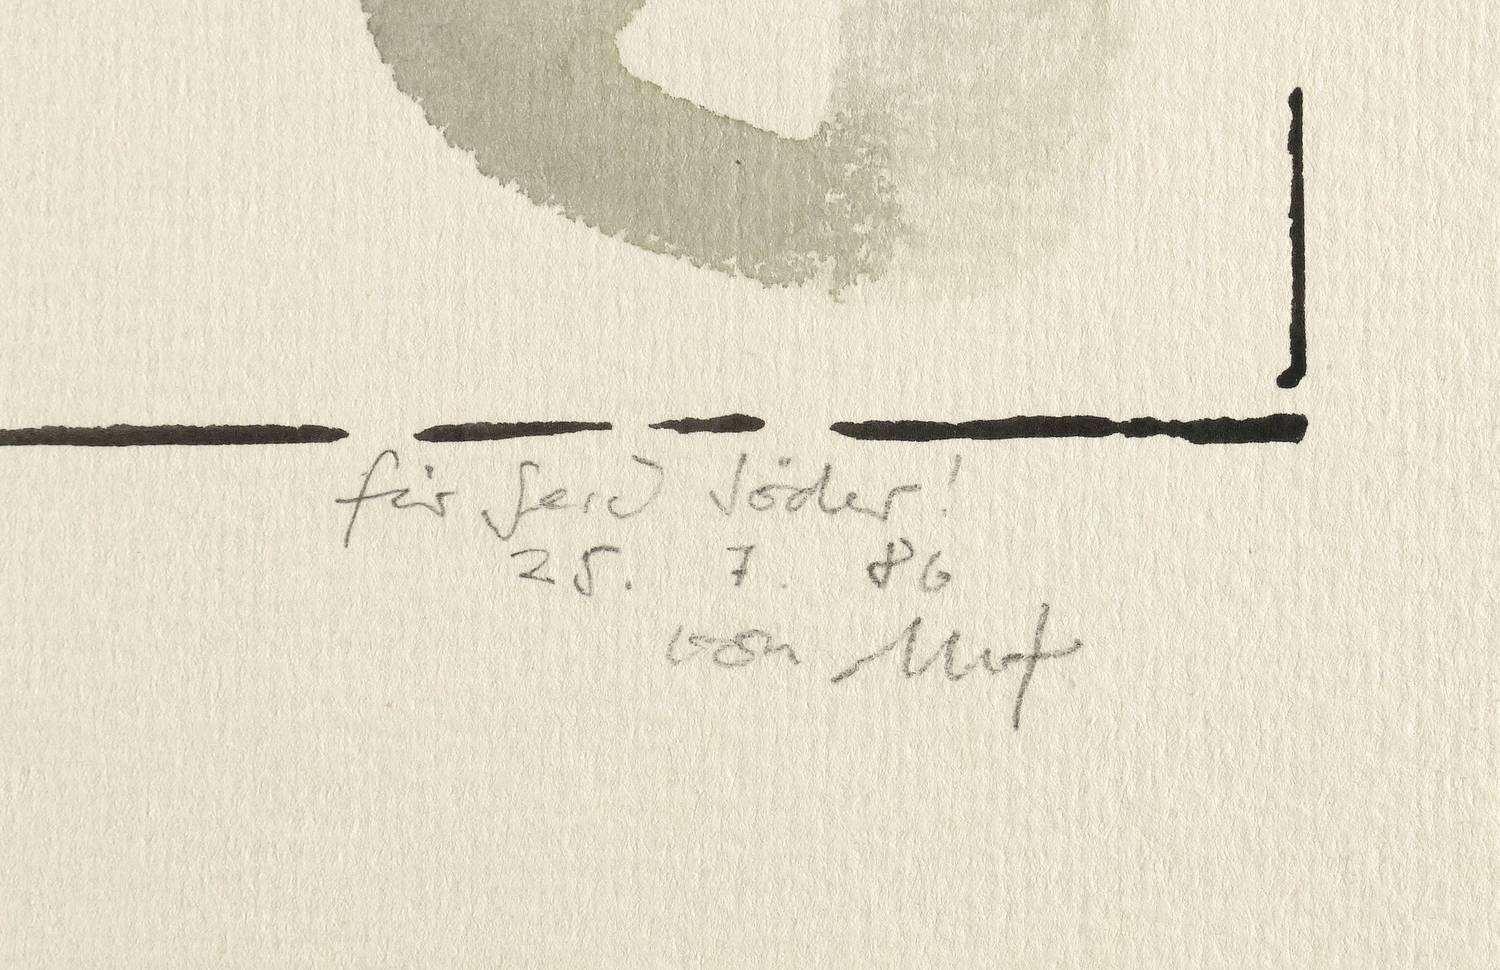 für Gerd Jöder!
25. 7. 86
von